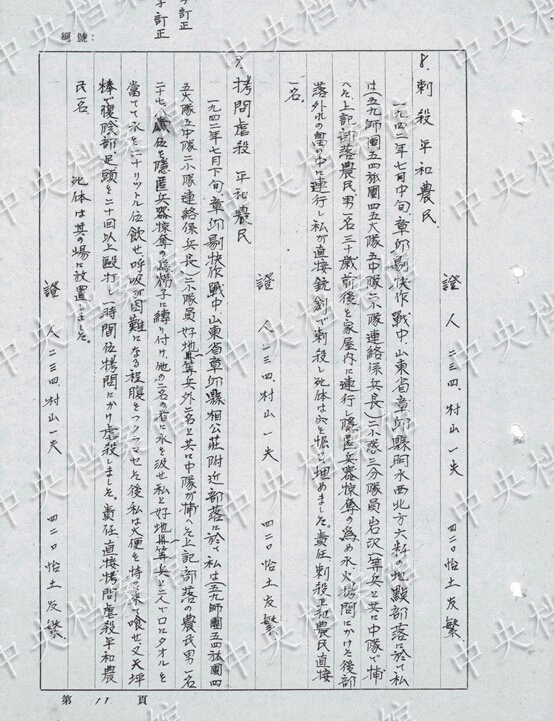 訂正
訂正
號：
證人 二三四、村山一夫 四二〇 怡土友繁
8. 刺殺平和農民
一九四二年七月中旬、章邱剔抉作戰中、山東省章邱縣 水西北方六粁の地點部落に於て私
は(五九師團五四旅團四五大隊五中隊二小隊連絡係兵長)二小隊三分隊員岩沢一等兵と共に中隊で捕
へた上記部落農民男一名三十歳前後を家屋内に連行し隱匿兵器掠奪の為め水火拷問にかけた後部
落外れの畠の中に連行し私が直接銃劍で刺殺し死体は穴を掘り埋めました。責任刺殺平和農民直接
一名。
證人 二三四、村山一夫 四二〇 怡土友繁
9. 拷問虐殺 平和農民
一九四二年七月下旬、章邱剔抉作戰中山東省章邱縣相公莊附近部落に於て私は(五九師團五四旅團四
五大隊五中隊二小隊連絡係兵長)二小隊員好地一等兵外二名と共に中隊が捕へた上記部落の農民男一名
二十七、八歳位を隱匿兵器掠奪の為梯子に縛り付け、他の二名の者に水を汲せ私と好地一等兵と二人で口にタオルを
當てて水を二十リットル位飲せ呼吸が困難になる程腹をフクラマせた後私は大便を持って来て喰せ又天坪
棒で腹陰部足頭を二十回以上毆打し一時間位拷問にかけ虐殺しました。責任直接拷問虐殺平和農
民一名、 死体は其の場に放置しました。
證人 二三四、村山一夫 四二〇 怡土友繁
第 11 頁
中央档案馆